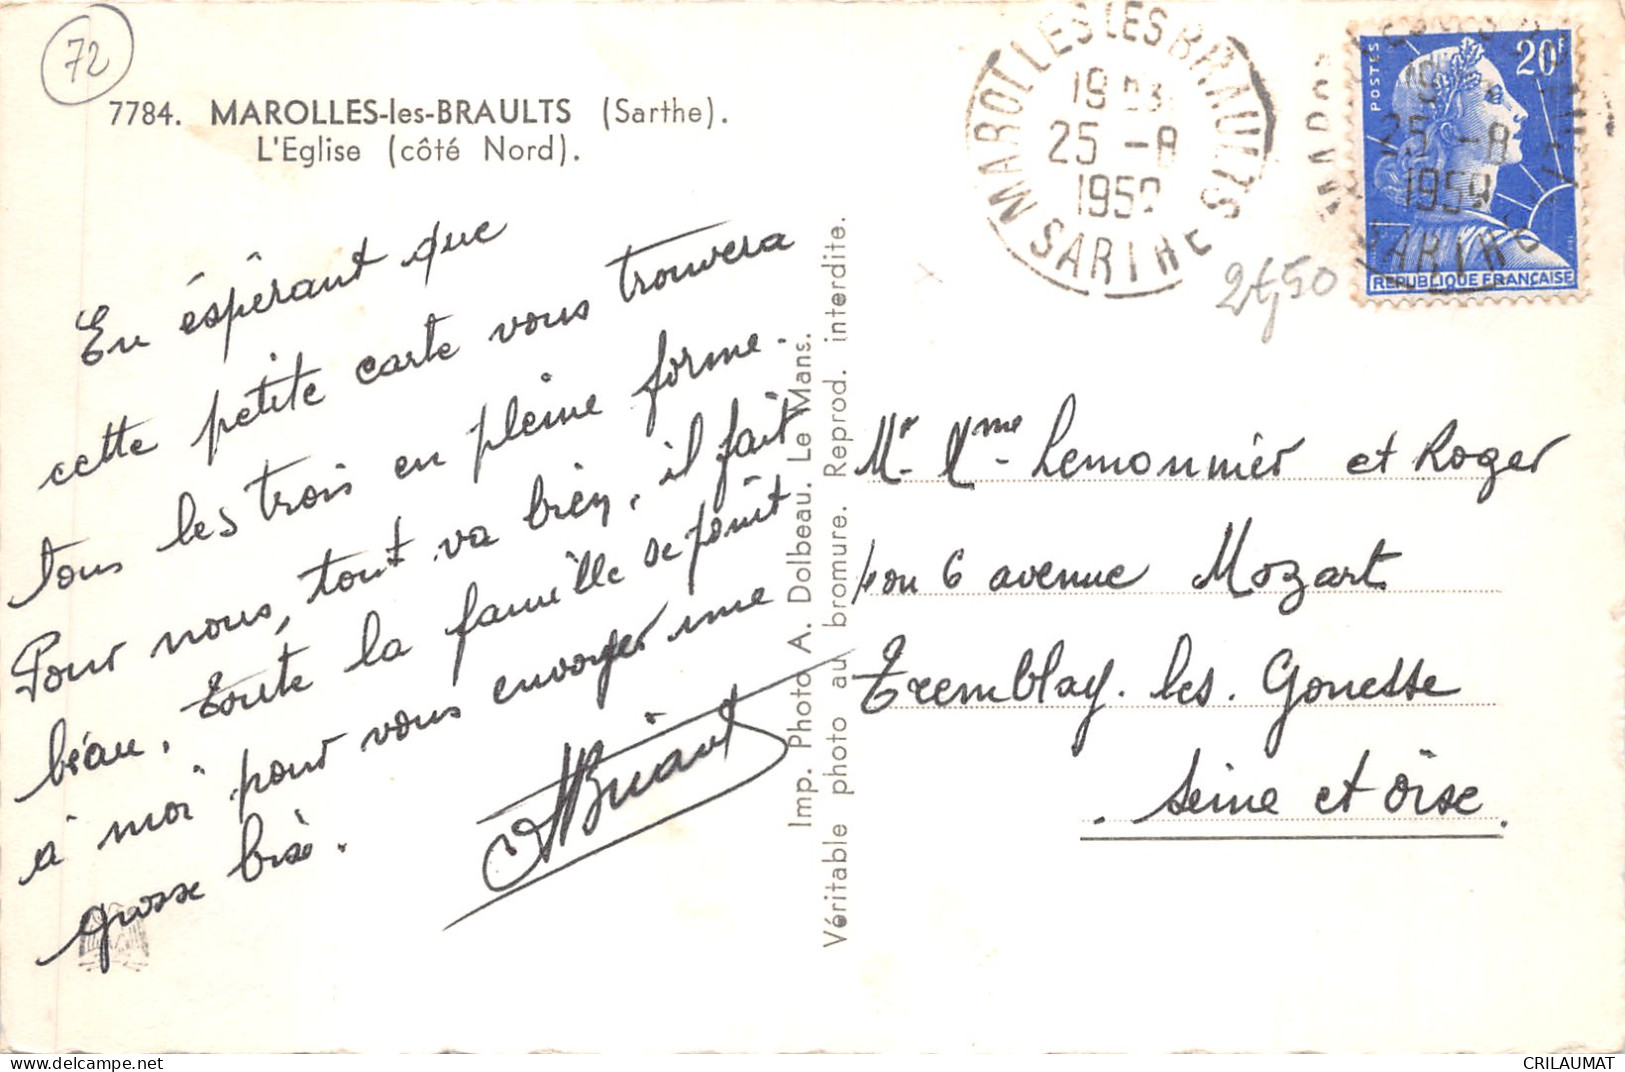 72
7784. MAROLLES-les-BRAULTS (Sarthe).
L'Eglise (côté Nord).
En éspérant que
cette petite carte vous trouvera
tous les trois en pleine forme.
Pour nous, tout va bien, il fait
beau. Toute la famille se joint
à moi pour vous envoyer une
grosse bise.
ABriant
Imp. Photo A. Dolbeau. Le Mans.
Véritable photo au bromure. Reprod. interdite.
MAROLLES LES BRAULTS
25 -8
1959
SARTHE
20F
POSTES
25 -8
1959
SARTHE
REPUBLIQUE FRANÇAISE
2f,50
Mr. Mme. Lemonnier et Roger
4 ou 6 avenue Mozart
Tremblay. les. Gonesse
Seine et Oise.
delcampe.net
CRILAUMAT